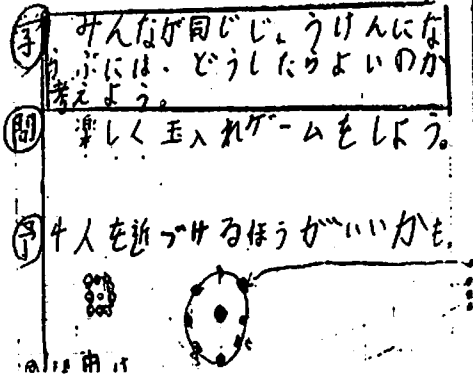 学 みんなが同じじょうけんにな
らぶには、どうしたらよいのか
考えよう。
問 楽しく玉入れゲームをしよう。
予 4人を近づけるほうがいいかも